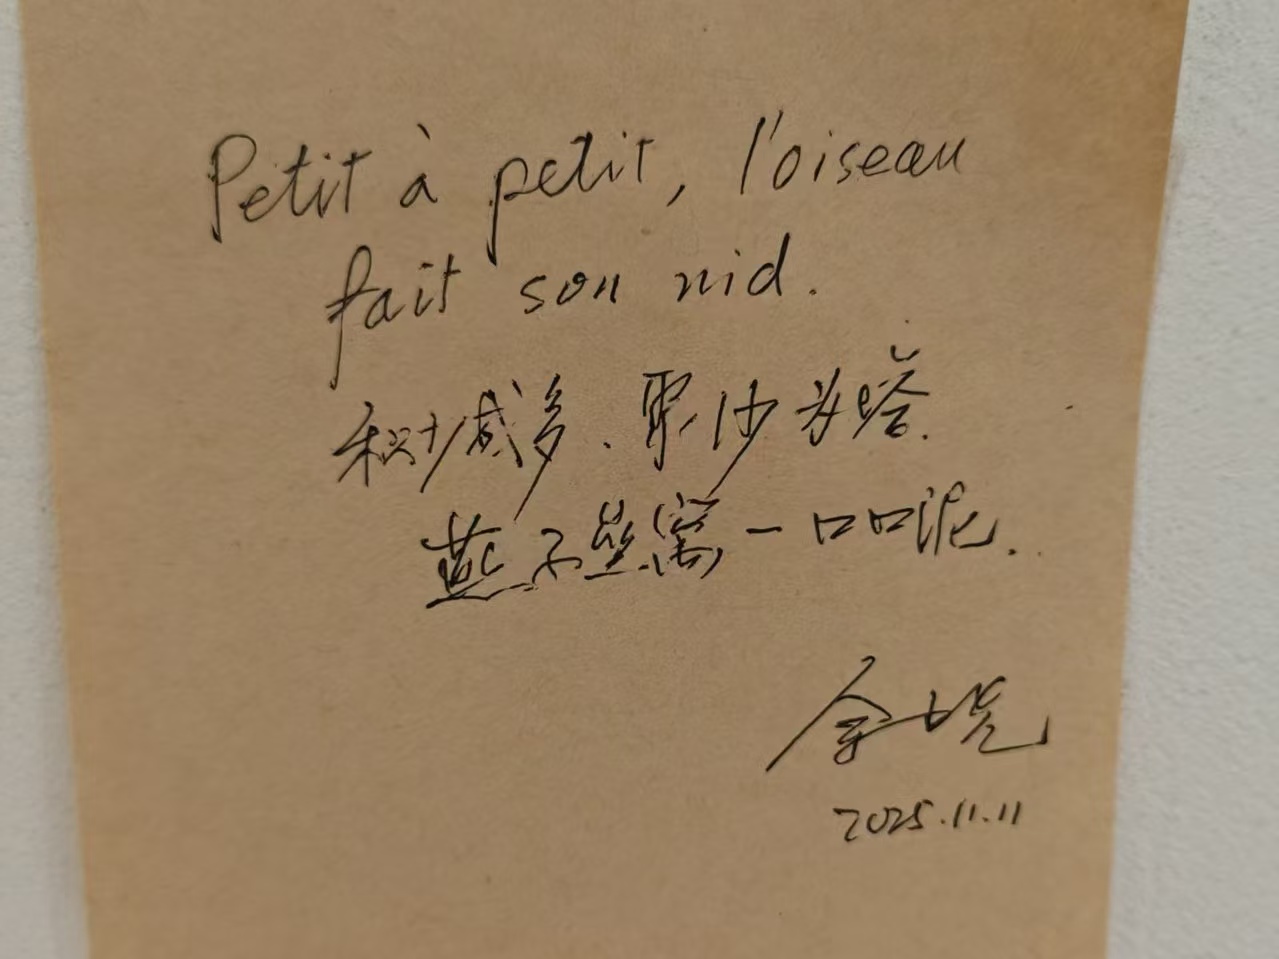 Petit à petit, l'oiseau
fait son nid.
积少成多、聚沙为塔.
燕子垒窝一口口泥.
2025.11.11